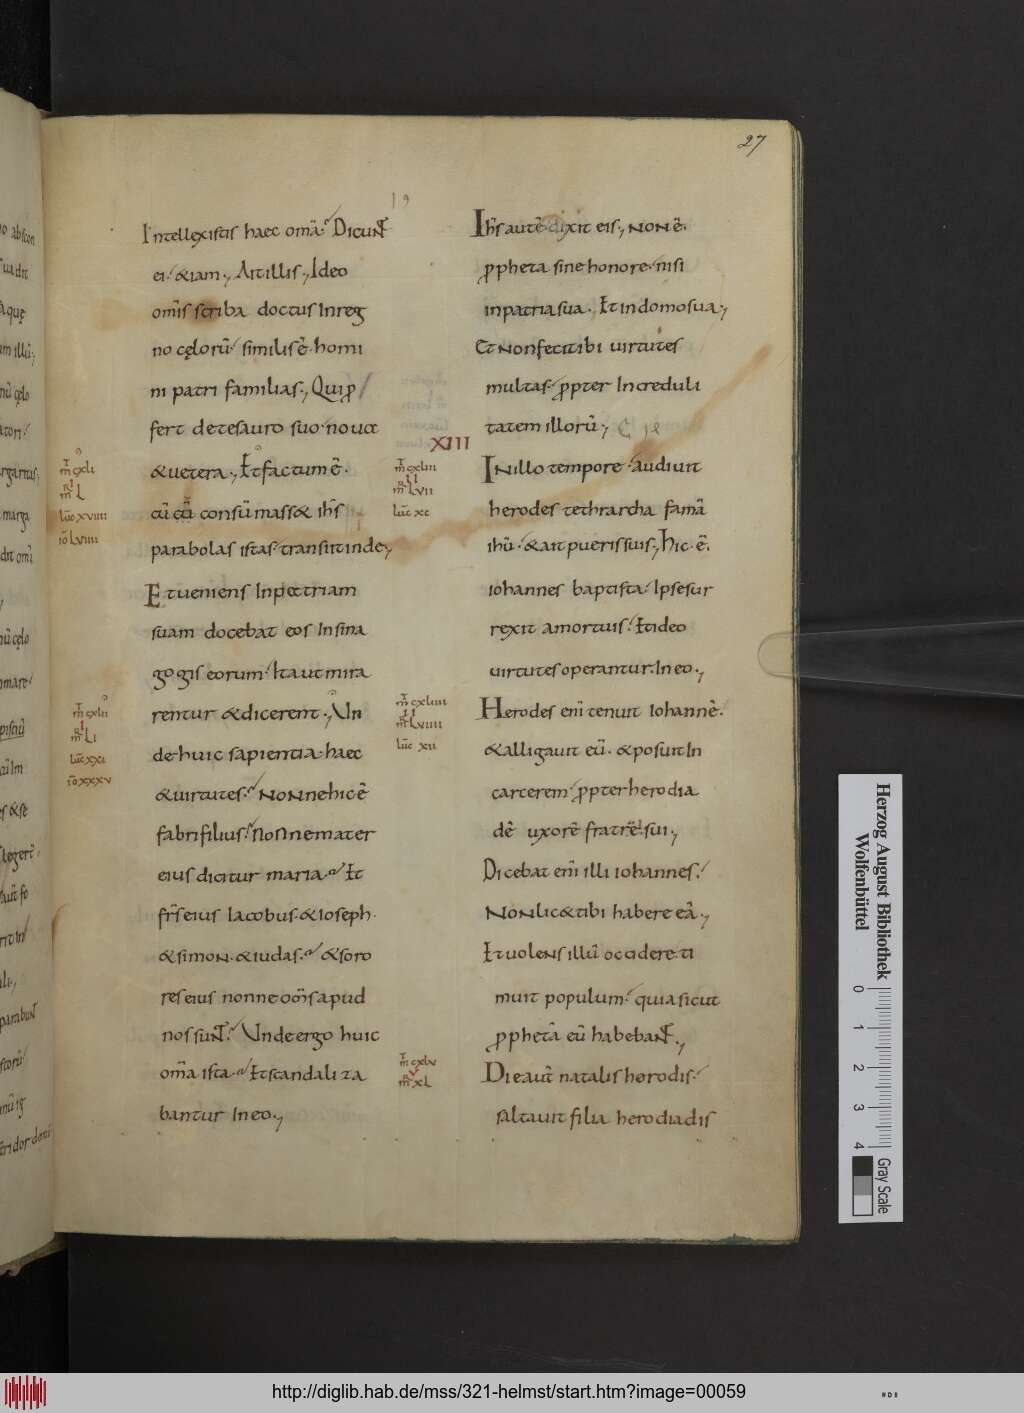 27
19
Intellexistis haec om̄a. Dicunt
ei. &iam. Ait illis. Ideo
om̄is scriba doctus in reg
no cęlorū. similis ē homi
ni patri familias. Qui ꝓ
fert de tesauro suo noua
& uetera. Et factum ē.
cū consūmass& ih̄s
parabolas istas. transiit inde.
Et ueniens in patriam
suam docebat eos in sina
gogis eorum. Ita ut mira
rentur & dicerent. Un
de huic sapientia haec
& uirtutes. Nonne hic ē
fabri filius. Nonne mater
eius dicitur maria. Et
fr̄s eius Iacobus. & Ioseph.
& simon. & iudas. & soro
res eius nonne om̄s apud
nos sunt. Unde ergo huic
om̄a ista. Et scandaliza
bantur In eo.
Ih̄s autē dixit eis. Non ē
ꝓpheta sine honore. nisi
in patria sua. Et in domo sua.
Et non fecit ibi uirtutes
multas. ꝓpter Increduli
tatem illorū.
XIII
In illo tempore audiuit
herodes tethrarcha famā
ihū. & ait pueris suis. Hic. ē.
Iohannes baptista. Ipse sur
rexit a mortuis. Et ideo
uirtutes operantur. In eo.
Herodes enī tenuit Iohannē.
& alligauit eū. & posuit In
carcerem. ꝓpter herodia
dē uxorē fratrē sui.
Dicebat enī illi iohannes.
Non lic& tibi habere eā.
Et uolens illū occidere. ti
muit populum. quia sicut
ꝓphetā eū habebant.
Die aut̄ natalis herodis.
saltauit filia herodiadis
m̄ cxli
m̄ L
luc̄ xviiii
io̅ Lviiii
m̄ cxlii
m̄ Li
luc̄ xxi
io̅ xxxv
m̄ cxliii
m̄ Lvii
luc̄ xc
m̄ cxliiii
m̄ Lviiii
luc̄ xii
m̄ cxlv
m̄ xL
Herzog August Bibliothek
Wolfenbüttel
0 1 2 3 4
Gray Scale
http://diglib.hab.de/mss/321-helmst/start.htm?image=00059